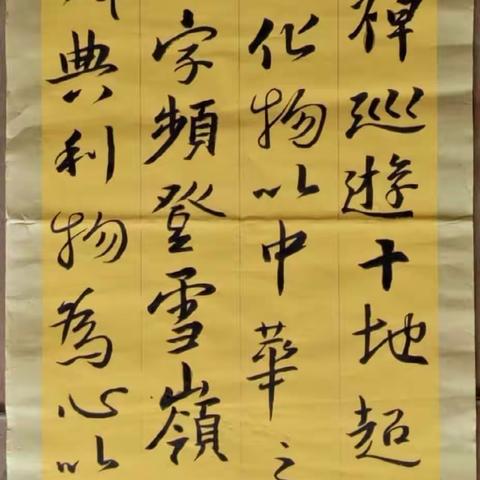 禪巡遊十地超
化物以中華之
字頻登雪嶺
典利物為心以